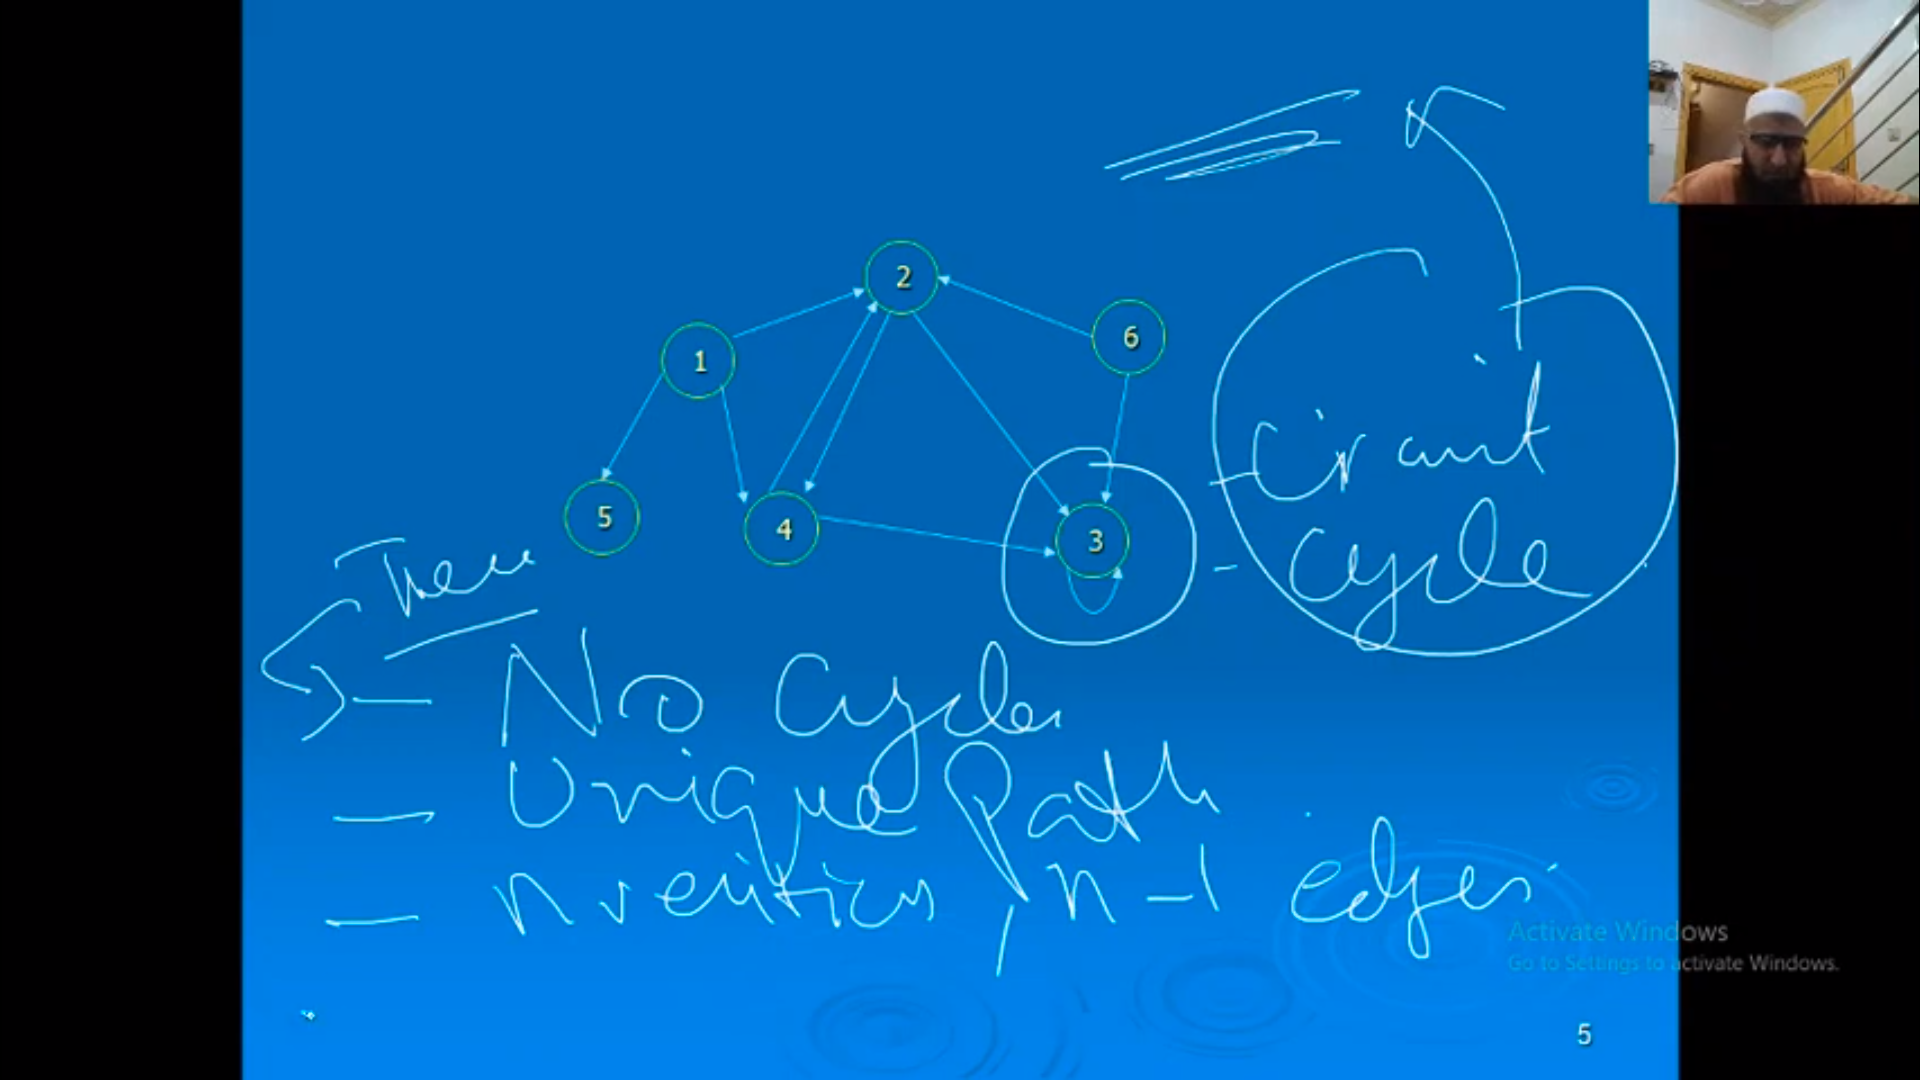 2
6
1
5
4
3
Circuit
Cycle
Tree
No Cycle
Unique Path
n vertices, n-1 edges
Activate Windows
Go to Settings to activate Windows.
5